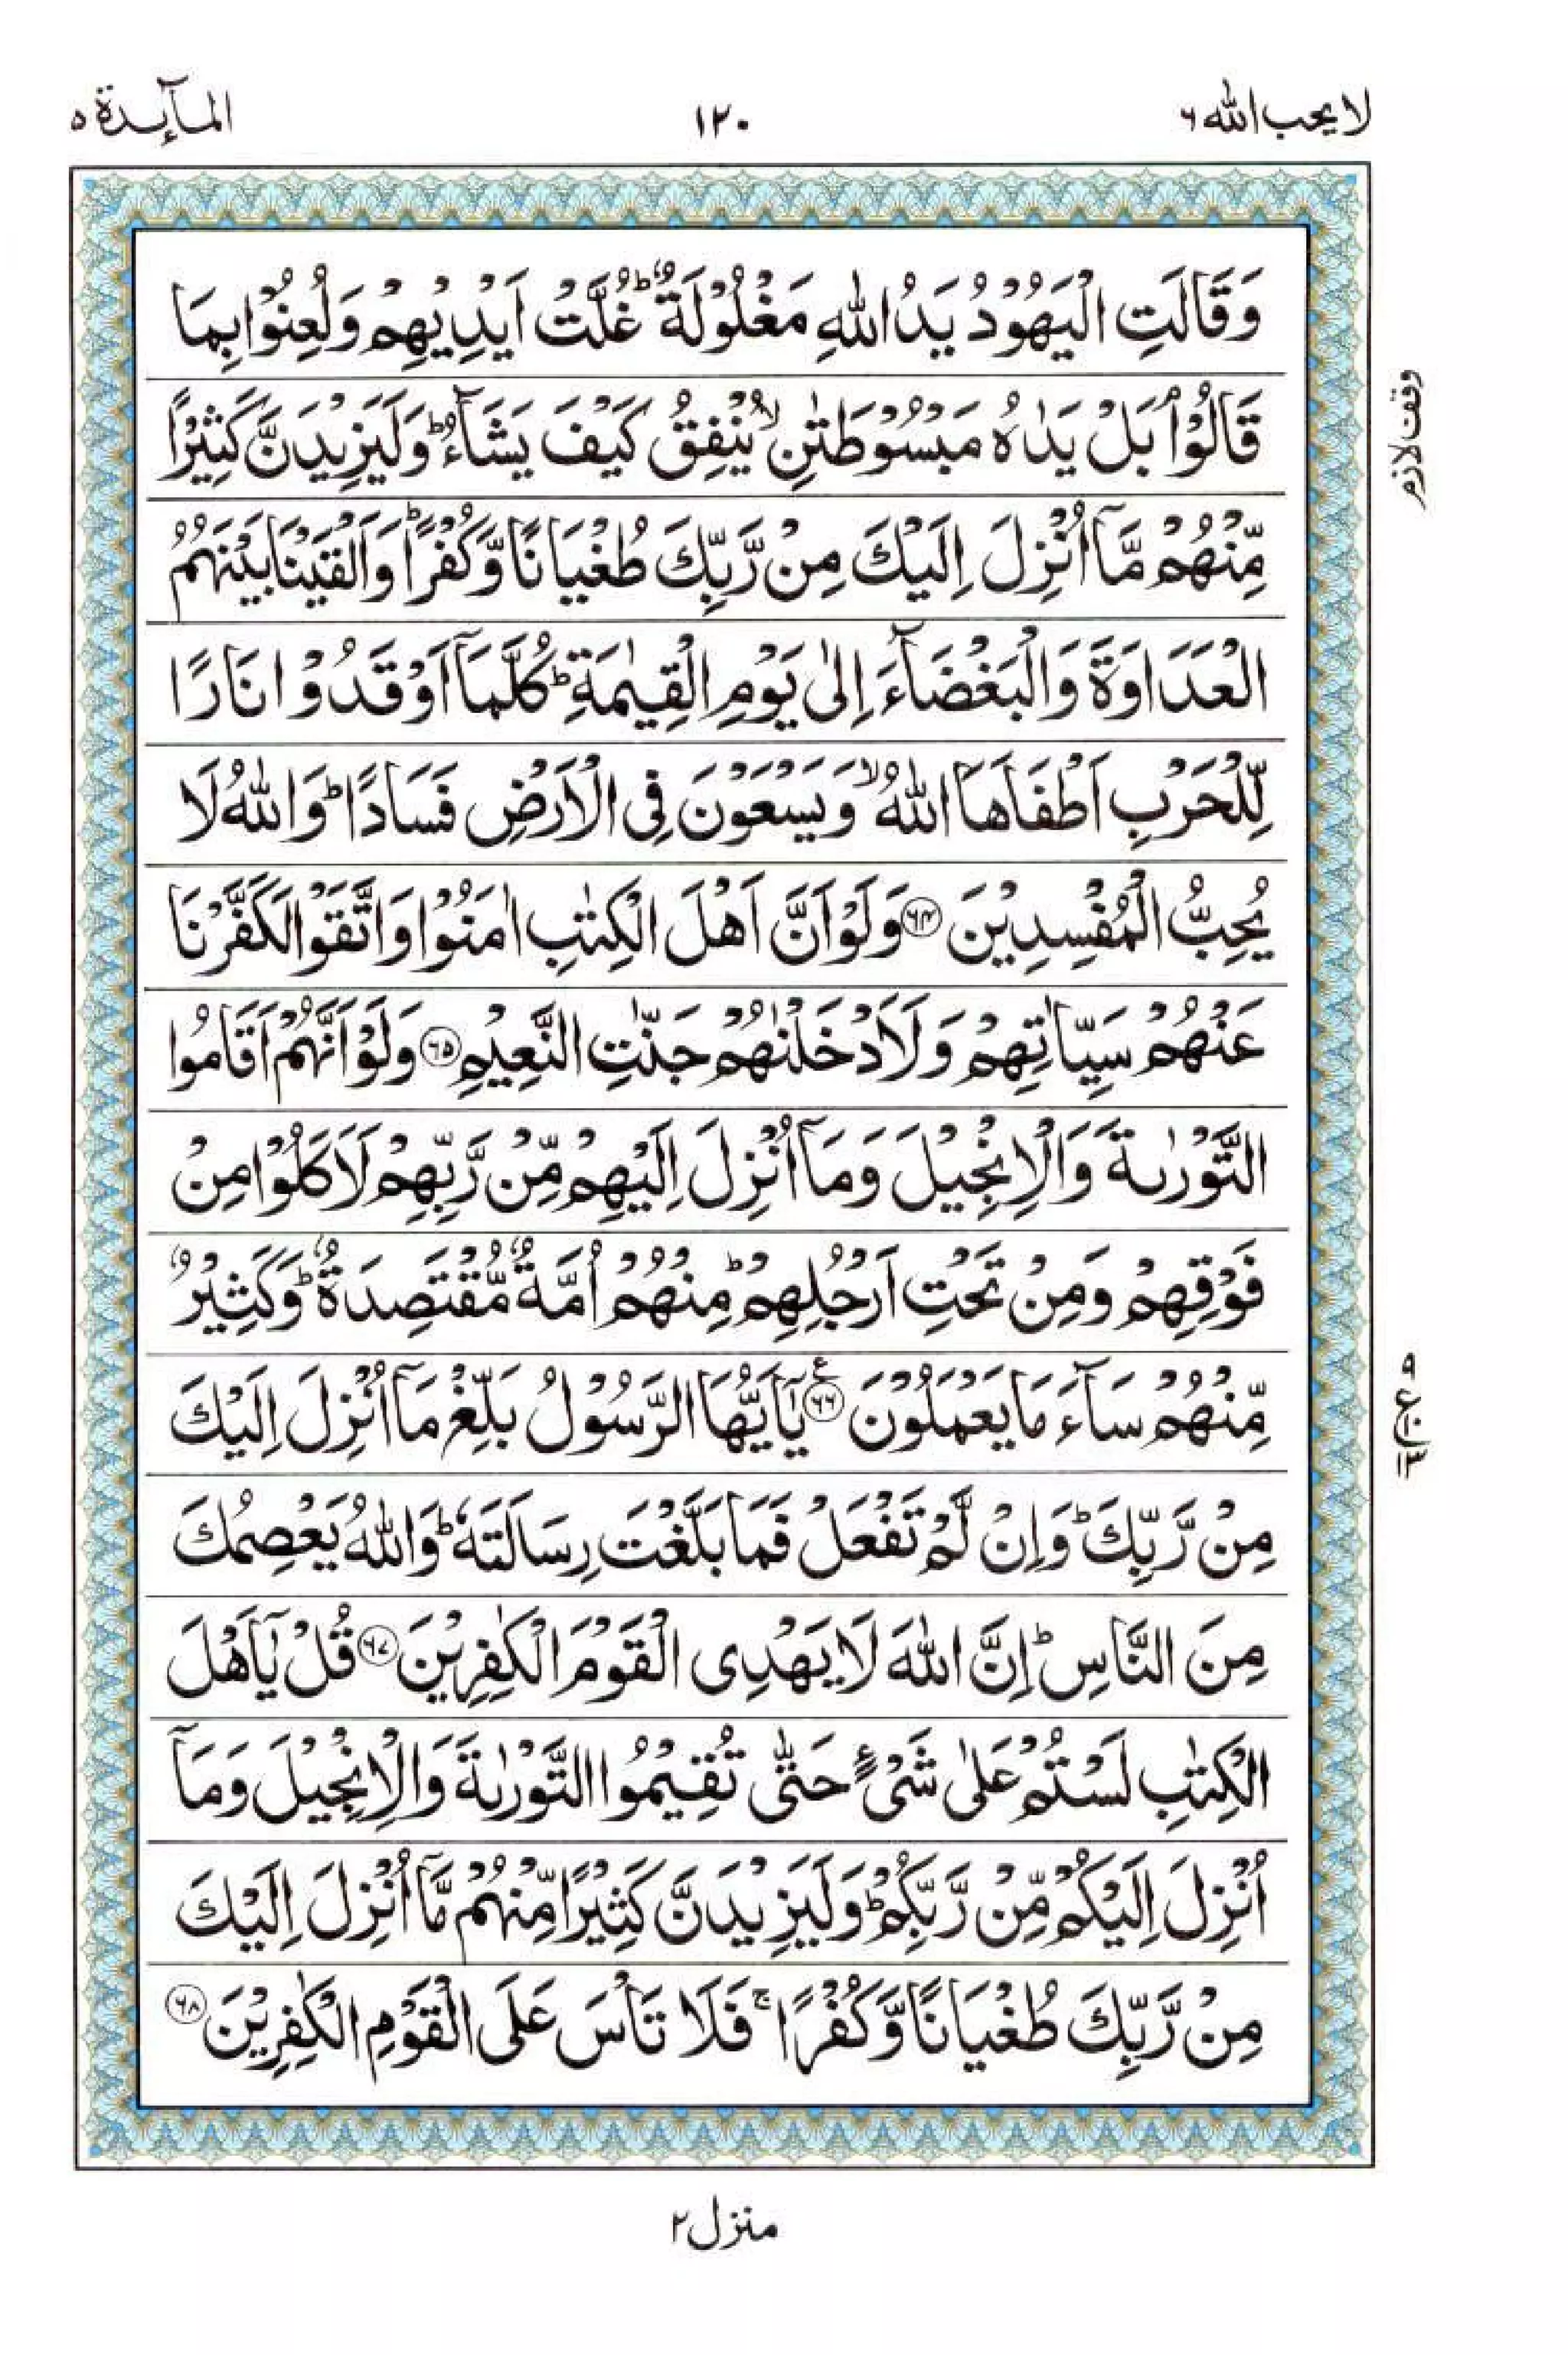 لا يحب الله ٦
١٢٠
المآىِٕدة ٥
وَقَالَتِ الْيَهُوْدُ يَدُ اللّٰهِ مَغْلُوْلَةٌ ؕ غُلَّتْ اَيْدِيْهِمْ وَلُعِنُوْا بِمَا
قَالُوْا ۘ بَلْ يَدٰهُ مَبْسُوْطَتٰنِ ۙ يُنْفِقُ كَيْفَ يَشَآءُ ؕ وَلَيَزِيْدَنَّ كَثِيْرًا
مِّنْهُمْ مَّاۤ اُنْزِلَ اِلَيْكَ مِنْ رَّبِّكَ طُغْيَانًا وَّكُفْرًا ؕ وَاَلْقَيْنَا بَيْنَهُمُ
الْعَدَاوَةَ وَالْبَغْضَآءَ اِلٰى يَوْمِ الْقِيٰمَةِ ؕ كُلَّمَاۤ اَوْقَدُوْا نَارًا
لِّلْحَرْبِ اَطْفَاَهَا اللّٰهُ ۙ وَيَسْعَوْنَ فِى الْاَرْضِ فَسَادًا ؕ وَاللّٰهُ لَا
يُحِبُّ الْمُفْسِدِيْنَ ۝٦٤ وَلَوْ اَنَّ اَهْلَ الْكِتٰبِ اٰمَنُوْا وَاتَّقَوْا لَكَفَّرْنَا
عَنْهُمْ سَيِّاٰتِهِمْ وَلَاَدْخَلْنٰهُمْ جَنّٰتِ النَّعِيْمِ ۝٦٥ وَلَوْ اَنَّهُمْ اَقَامُوا
التَّوْرٰىةَ وَالْاِنْجِيْلَ وَمَاۤ اُنْزِلَ اِلَيْهِمْ مِّنْ رَّبِّهِمْ لَاَكَلُوْا مِنْ
فَوْقِهِمْ وَمِنْ تَحْتِ اَرْجُلِهِمْ ؕ مِنْهُمْ اُمَّةٌ مُّقْتَصِدَةٌ ؕ وَكَثِيْرٌ
مِّنْهُمْ سَآءَ مَا يَعْمَلُوْنَ ۝٦٦ ع يٰۤاَيُّهَا الرَّسُوْلُ بَلِّغْ مَاۤ اُنْزِلَ اِلَيْكَ
مِنْ رَّبِّكَ ؕ وَاِنْ لَّمْ تَفْعَلْ فَمَا بَلَّغْتَ رِسَالَتَهٗ ؕ وَاللّٰهُ يَعْصِمُكَ
مِنَ النَّاسِ ؕ اِنَّ اللّٰهَ لَا يَهْدِى الْقَوْمَ الْكٰفِرِيْنَ ۝٦٧ قُلْ يٰۤاَهْلَ
الْكِتٰبِ لَسْتُمْ عَلٰى شَىْءٍ حَتّٰى تُقِيْمُوا التَّوْرٰىةَ وَالْاِنْجِيْلَ وَمَاۤ
اُنْزِلَ اِلَيْكُمْ مِّنْ رَّبِّكُمْ ؕ وَلَيَزِيْدَنَّ كَثِيْرًا مِّنْهُمْ مَّاۤ اُنْزِلَ اِلَيْكَ
مِنْ رَّبِّكَ طُغْيَانًا وَّكُفْرًا ۚ فَلَا تَاْسَ عَلَى الْقَوْمِ الْكٰفِرِيْنَ ۝٦٨
وقف لازم
٩
ع
١٣
منزل ٢